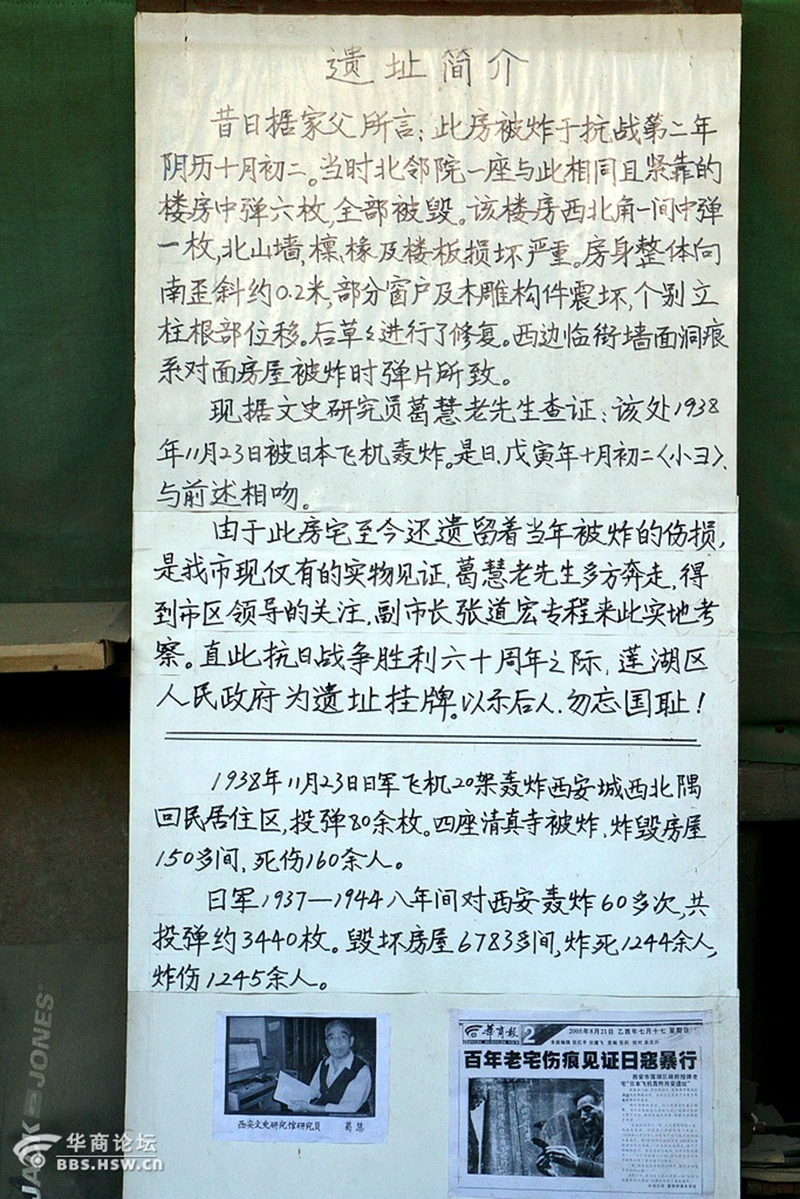 遗址简介
昔日据家父所言：此房被炸于抗战第二年
阴历十月初二。当时北邻院一座与此相同且紧靠的
楼房中弹六枚，全部被毁。该楼房西北角一间中弹
一枚，北山墙，檩、椽及楼板损坏严重。房身整体向
南歪斜约0.2米，部分窗户及木雕构件震坏，个别立
柱根部位移。后草々进行了修复。西边临街墙面洞痕
系对面房屋被炸时弹片所致。
现据文史研究员葛慧老先生查证：该处1938
年11月23日被日本飞机轰炸。是日、戊寅年十月初二〈小彐〉、
与前述相吻。
由于此房宅至今还遗留着当年被炸的伤损，
是我市现仅有的实物见证，葛慧老先生多方奔走，得
到市区领导的关注，副市长张道宏专程来此实地考
察。直此抗日战争胜利六十周年之际，莲湖区
人民政府为遗址挂牌。以示后人．勿忘国耻！
1938年11月23日日军飞机20架轰炸西安城西北隅
回民居住区，投弹80余枚。四座清真寺被炸，炸毁房屋
150多间，死伤160余人。
日军1937—1944八年间对西安轰炸60多次，共
投弹约3440枚。毁坏房屋6783多间，炸死1244余人，
炸伤1245余人。
西安文史研究馆研究员 葛慧
华商报 2 2005年8月21日 乙酉年七月十七 星期日
百年老宅伤痕见证日寇暴行
西安市莲湖区政府挂牌老
宅“日本飞机轰炸西安遗址”
JACK JONES
华商论坛
BBS.HSW.CN